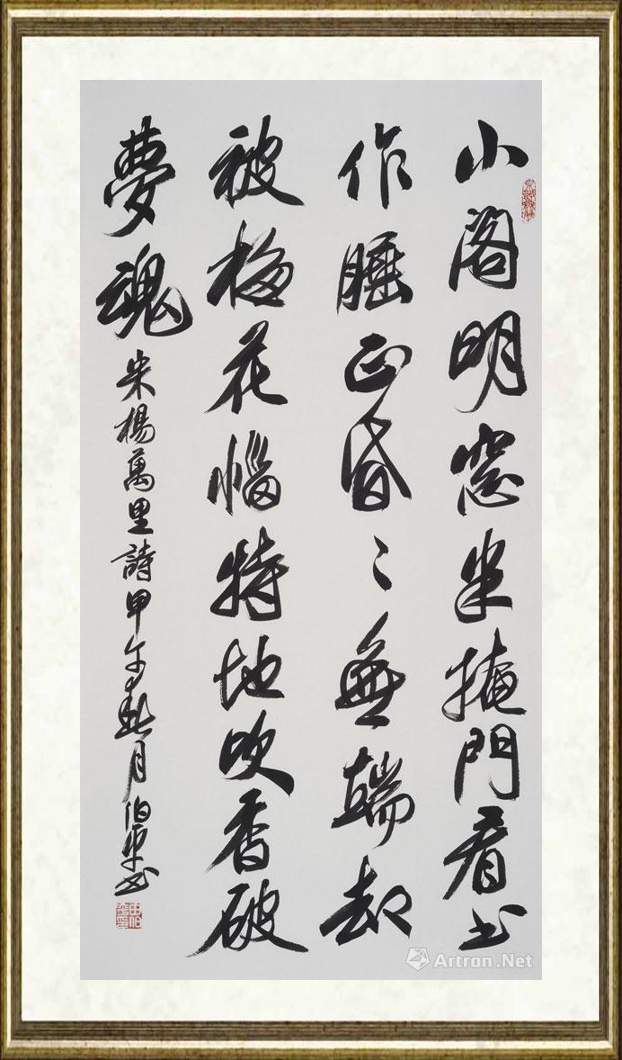 小閣明窓半掩門看书
作睡正昏〻無端却
被梅花惱特地吹香破
夢魂
宋楊萬里詩甲午秋月伯华书
Artron.Net